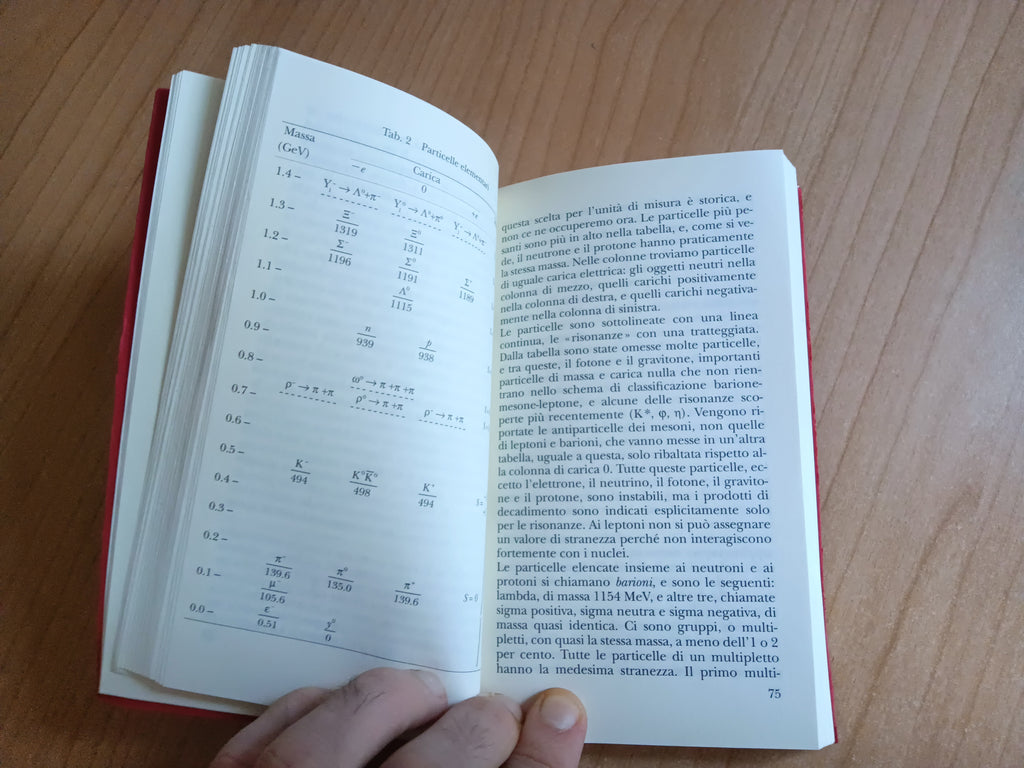 Tab. 2 Particelle elementari
Massa
(GeV)
Carica
−e 0 +e
1.4 –
Y⁻₁ → Λ⁰+π⁻ Y⁰ → Λ⁰+π⁰
1.3 –
Ξ⁻ 1319 Ξ⁰ 1311
1.2 –
Σ⁻ 1196 Σ⁰ 1191 Σ⁺ 1189
1.1 –
Λ⁰ 1115
1.0 –
0.9 –
n 939 p 938
0.8 –
ω⁰ → π+π+π
0.7 –
ρ⁻ → π+π ρ⁰ → π+π ρ⁻ → π+π
0.6 –
0.5 –
K⁻ 494 K⁰K̅⁰ 498 K⁺ 494
0.4 –
0.3 –
0.2 –
π⁻ 139.6 π⁰ 135.0 π⁺ 139.6 S=0
0.1 –
μ⁻ 105.6
0.0 –
ε⁻ 0.51 0
questa scelta per l'unità di misura è storica, e
non ce ne occuperemo ora. Le particelle più pe-
santi sono più in alto nella tabella, e, come si ve-
de, il neutrone e il protone hanno praticamente
la stessa massa. Nelle colonne troviamo particelle
di uguale carica elettrica: gli oggetti neutri nella
colonna di mezzo, quelli carichi positivamente
nella colonna di destra, e quelli carichi negativa-
mente nella colonna di sinistra.
Le particelle sono sottolineate con una linea
continua, le «risonanze» con una tratteggiata.
Dalla tabella sono state omesse molte particelle,
e tra queste, il fotone e il gravitone, importanti
particelle di massa e carica nulla che non rien-
trano nello schema di classificazione barione-
mesone-leptone, e alcune delle risonanze sco-
perte più recentemente (K*, φ, η). Vengono ri-
portate le antiparticelle dei mesoni, non quelle
di leptoni e barioni, che vanno messe in un'altra
tabella, uguale a questa, solo ribaltata rispetto al-
la colonna di carica 0. Tutte queste particelle, ec-
cetto l'elettrone, il neutrino, il fotone, il gravito-
ne e il protone, sono instabili, ma i prodotti di
decadimento sono indicati esplicitamente solo
per le risonanze. Ai leptoni non si può assegnare
un valore di stranezza perché non interagiscono
fortemente con i nuclei.
Le particelle elencate insieme ai neutroni e ai
protoni si chiamano barioni, e sono le seguenti:
lambda, di massa 1154 MeV, e altre tre, chiamate
sigma positiva, sigma neutra e sigma negativa, di
massa quasi identica. Ci sono gruppi, o multi-
pletti, con quasi la stessa massa, a meno dell'1 o 2
per cento. Tutte le particelle di un multipletto
hanno la medesima stranezza. Il primo multi-
75